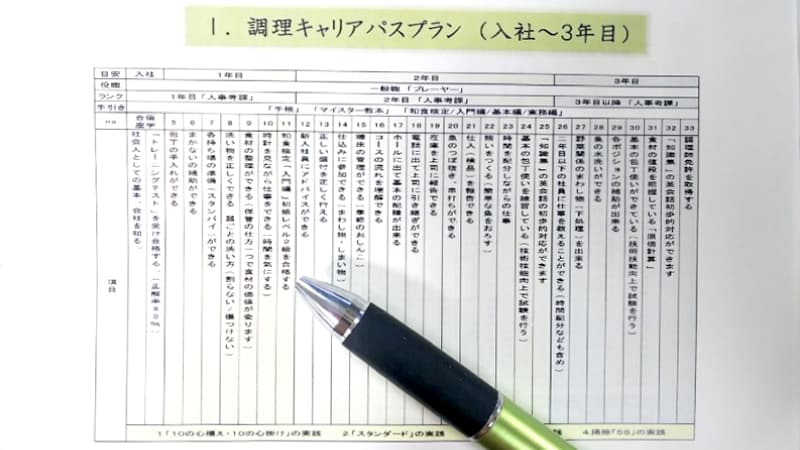 1. 調理キャリアパスプラン（入社～3年目）
目安 入社 1年目 2年目 3年目
役職 一般職「プレーヤー」
ランク 1年目「人事考課」 2年目「人事考課」 3年目以降「人事考課」
手引き 「手帳」 「マイスター教本」 「和食検定/入門編/基本編/実務編」
項目
社会人としての基本、会社を知る、
「トレーニングテスト」を受け合格する、（正解率80%）
5 包丁の手入れができる
6 まかないの補助ができる
7 各持ち場の準備（スタンバイ）ができる
8 洗い物を正しくできる 器ごとの洗い方（割らない/傷つけない）
9 食材の整理ができる（保管の仕方一つで食材の価値が変ります）
10 時計を見ながら仕事をできる（時間を気にする）
11 和食検定「入門編」初級レベル2級を合格する
12 新人社員にアドバイスができる
13 正しい盛付を正しく行える
14 仕込みに参加できる（まわし物・しまい物）
15 糠床の管理ができる（季節のおしんこ）
16 コースの流れを理解できる
17 ホールに出て基本の配膳が出来る
18 電話に出て上司に引き継ぎができる
19 在庫を上司に報告できる
20 魚のつぼ抜き、黒打ちができる
21 仕入（検品）を報告できる
22 賄いをつくる（簡単な魚をおろす）
23 時間を配分しながらの仕事
24 基本の包丁使いを練習している（技術技能向上で試験を行う）
25 「知識集」の英会話の初歩的対応ができます
26 一年目以下の社員に仕事を教えることができる（時間配分なども含め）
27 野菜関係のまわし物（下処理）を出来る
28 魚の水洗いができる
29 各ポジションの補助が出来る
30 基本の包丁使いができている（技術技能向上で試験を行う）
31 食材の値段を把握している「原価計算」
32 「知識集」の英会話初歩的対応ができます
33 調理師免許を取得する
1.「10の心構え・10の心掛け」の実践 2.「スタンダード」の実践 4.掃除「5S」の実践